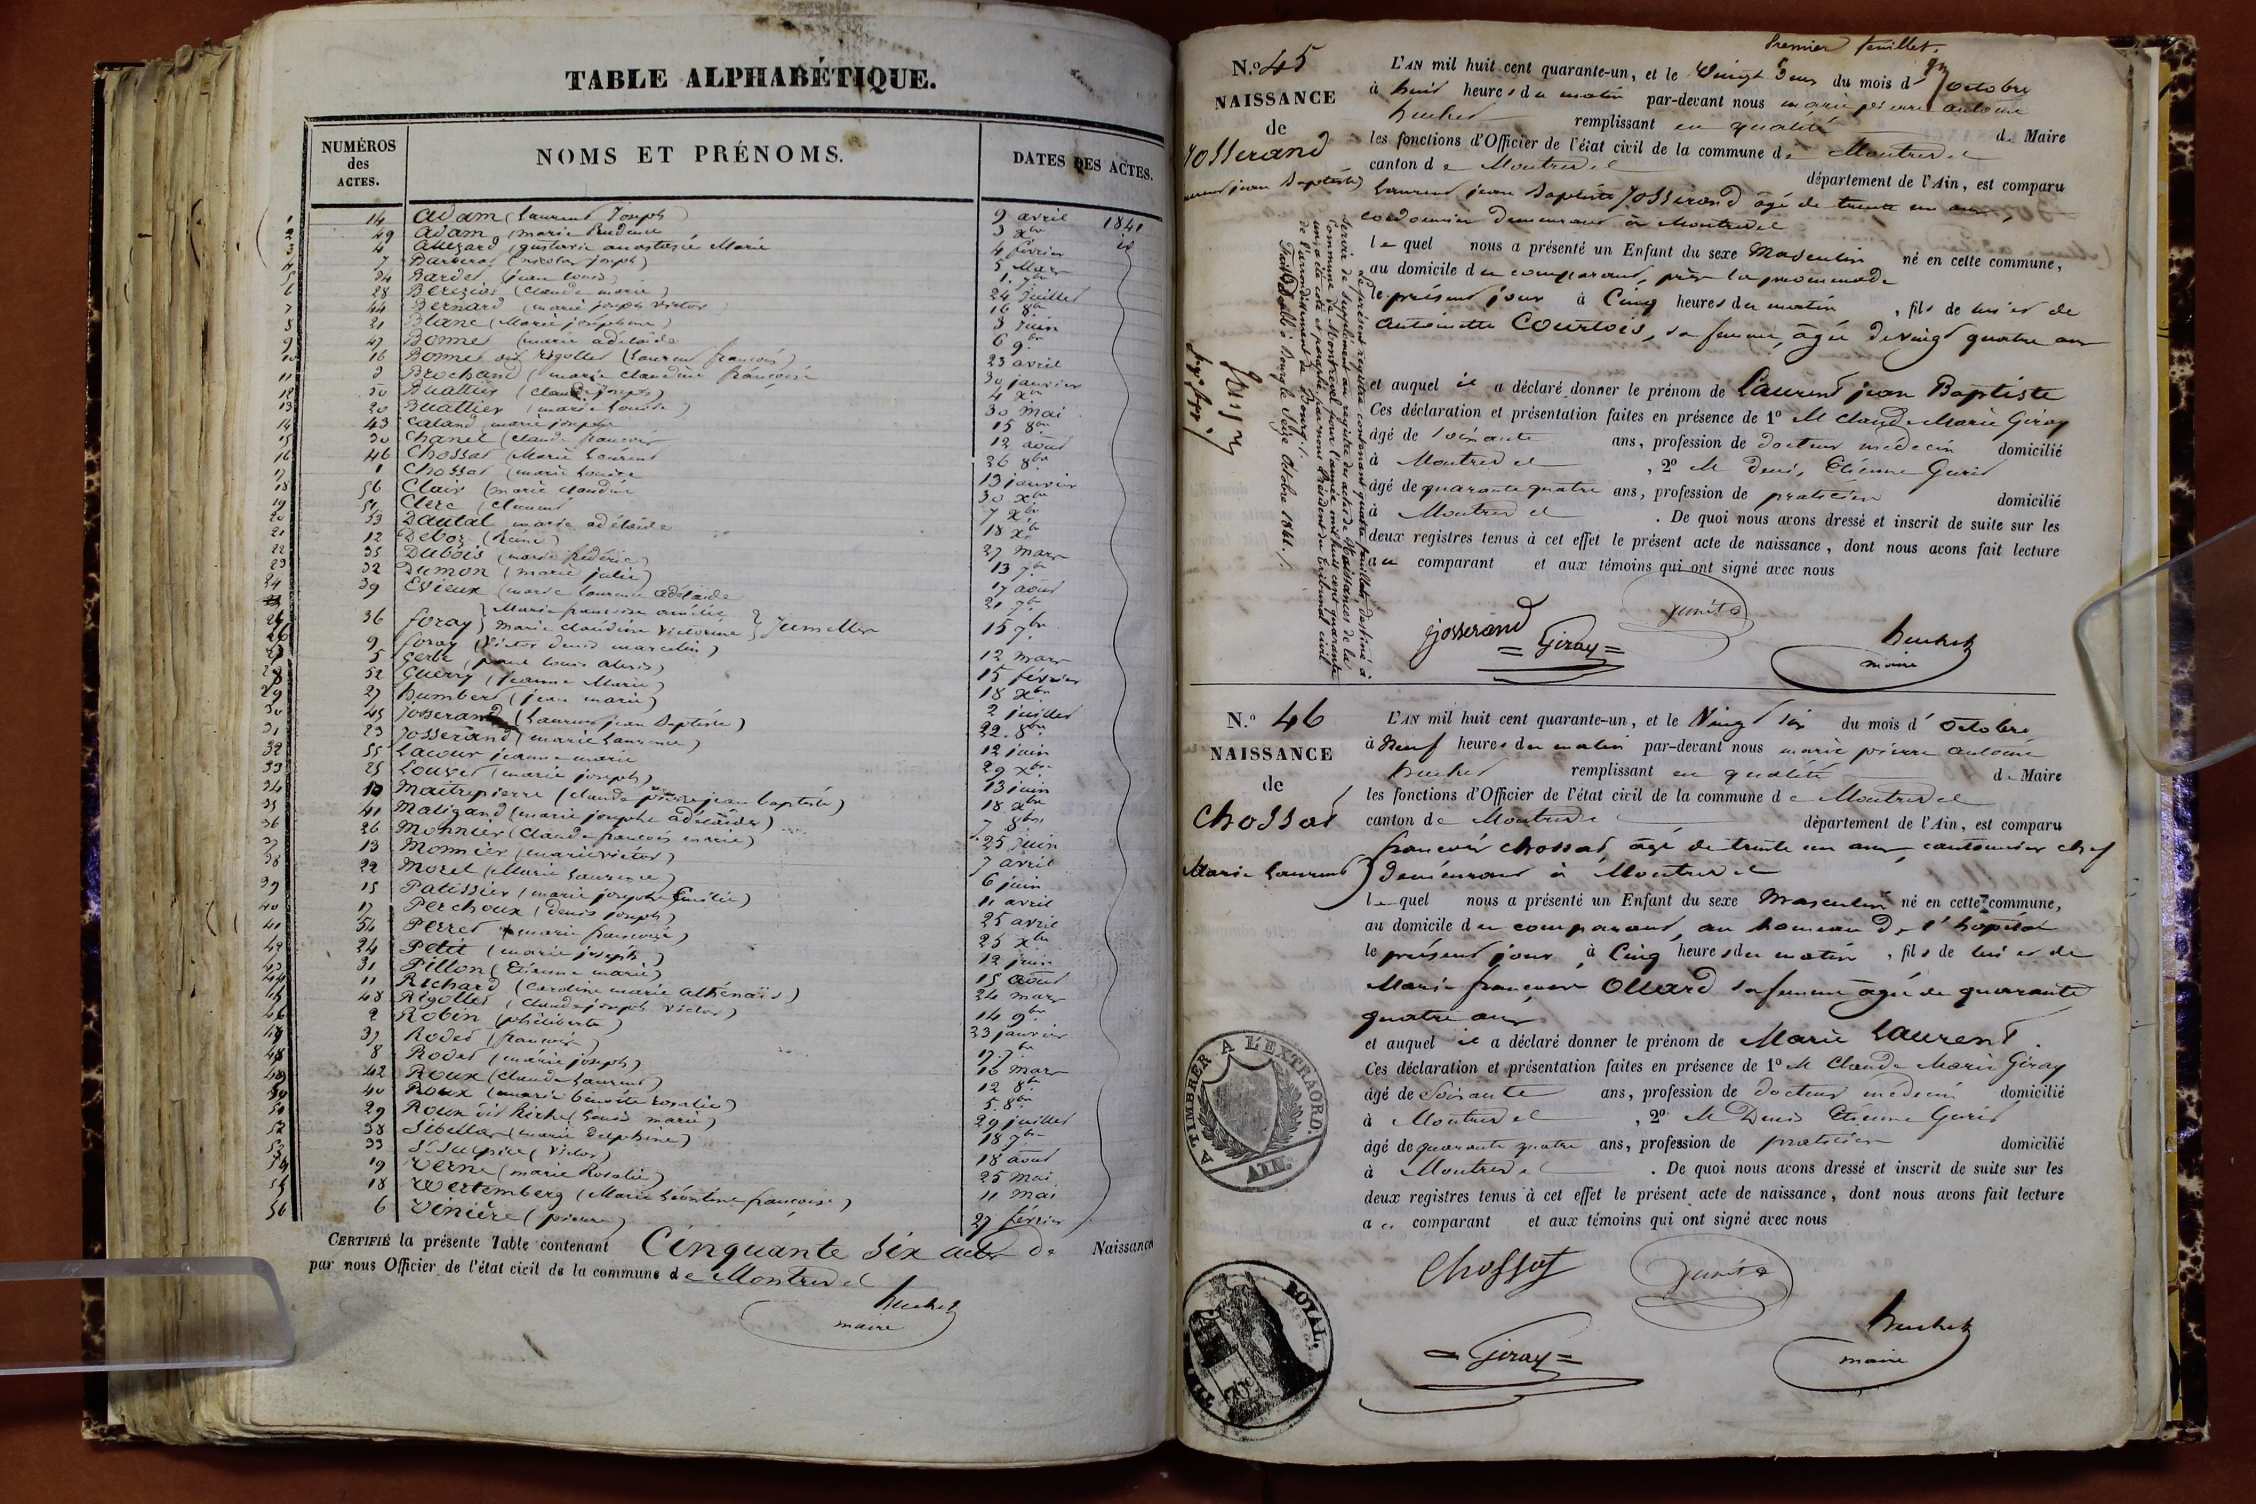 TABLE ALPHABÉTIQUE.
NUMÉROS des ACTES.
NOMS ET PRÉNOMS.
DATES DES ACTES.
1 14 Adam (Laurent Joseph) 9 avril 1841
2 49 Adam (marie Prudence 3 Xbre id
3 4 (gustavie anastasie Marie 4 février
4 7 (nicolas joseph) 5 Mars
5 34 Bardet (jean Louis)
6 28 (Claude marie) 24 juillet
7 44 Bernard (marie joseph victor 16 8bre
8 21 Blanc (Marie joséphine) 3 juin
9 47 Bonnet (marie adélaïde 6 9bre
10 16 Bonnet dit Rigollet (Laurent françois) 23 avril
11 3 Brochand (marie claudine françoise 30 janvier
12 50 Buattier (Claude joseph) 4 Xbre
13 20 Buattier (marie Louise) 30 mai
14 43 Caland marie josephe 15 8bre
15 30 Chanel (Claude françois 12 août
16 46 Chossat (Marie Laurent 26 8bre
17 1 Chossat (marie Louise 13 janvier
18 56 Clair (marie claudine 30 Xbre
19 51 Clerc (Clément 7 Xbre
20 53 Dautal marie adélaïde 18 Xbre
21 12 Debos (Reine) 27 mars
22 35 Dubois (marie frédéric) 13 7bre
23 32 Dumon (marie julie) 17 août
24 39 Evieux (marie Laurence adélaïde 21 7bre
36 foray } Marie françoise
marie claudine victorine } jumelles 15 7bre
9 foray (Victor denis marcelin) 12 mars
5 Gerbe (paul louis alexis) 15 février
28 52 Guerry (Jeanne Marie) 18 Xbre
29 27 humbert (jean marie) 2 juillet
30 45 Josserand (Laurent jean Baptiste) 22 8bre
31 23 Josserand (marie Laurence) 12 juin
32 55 Lacour jeanne marie 29 Xbre
33 25 Louvet (marie joseph) 13 juin
34 10 Maitrepierre (claude pierre jean baptiste) 18 Xbre
35 41 Maligand (marie josephe adélaïde) 7 8bre
36 26 Monnier (Claude françois marie) 25 juin
37 13 Monnier (marie victor) 7 avril
38 22 Morel (Marie Laurence) 6 juin
39 15 Patissier (marie josephe Emélie) 11 avril
40 17 Perchoux (denis joseph) 25 avril
41 54 Perret (marie françoise) 25 Xbre
42 24 Petit (marie joseph) 12 juin
43 31 Pillon (Etienne marie) 15 août
44 11 Richard (Caroline marie athénaïs) 24 mars
45 48 Rigollet (Claude joseph victor) 14 9bre
46 2 Robin (philiberte) 23 janvier
47 37 Rodet (françois) 17 7bre
48 8 Rodet (marie joseph) 10 mars
49 42 Roux (Claude Laurent) 12 8bre
50 40 Roux (marie benoite rosalie) 5 8bre
51 29 Roux dit Riche (Louis marie) 29 juillet
52 38 Sibellas (marie delphine) 18 7bre
53 33 St Sulpice (Victor) 18 août
54 19 Verne (marie Rosalie) 25 mai
55 18 Wertemberg (Marie Léontine françoise) 11 mai
56 6 Vinière (pierre) 27 février
CERTIFIÉ la présente Table contenant Cinquante Six actes de Naissance
par nous Officier de l'état civil de la commune de Montrevel
huchet
maire
Premier feuillet.
N.º 45
NAISSANCE
de
Josserand
Laurent jean Baptiste)
L'AN mil huit cent quarante-un, et le Vingt Deux du mois d'octobre
à huit heures du matin par-devant nous marie pierre antoine
huchet remplissant en qualité de Maire
les fonctions d'Officier de l'état civil de la commune de Montrevel
canton de Montrevel département de l'Ain, est comparu
Laurent jean Baptiste Josserand âgé de trente un ans,
cordonnier demeurant à Montrevel
lequel nous a présenté un Enfant du sexe Masculin né en cette commune,
au domicile du comparant, près la promenade
le présent jour à Cinq heures du matin, fils de lui et de
antoinette Courtois, sa femme, âgée de vingt quatre ans
et auquel il a déclaré donner le prénom de Laurent jean Baptiste
Ces déclaration et présentation faites en présence de 1º M Claude Marie Giray
âgé de soixante ans, profession de docteur médecin domicilié
à Montrevel, 2º M Denis Etienne Gurit
âgé de quarante quatre ans, profession de praticien domicilié
à Montrevel. De quoi nous avons dressé et inscrit de suite sur les
deux registres tenus à cet effet le présent acte de naissance, dont nous avons fait lecture
au comparant et aux témoins qui ont signé avec nous
Le présent registre contenant quatre feuillets destiné à
servir de supplément au registre des actes de Naissances de la
Commune de Montrevel pour l'année mil huit cent quarante
un a été coté et paraphé par nous Président du tribunal civil
de l'arrondissement de Bourg.
Josserand
= Giray =
huchet
maire
N.º 46
NAISSANCE
de
Chossat
Marie Laurent)
L'AN mil huit cent quarante-un, et le Vingt six du mois d'octobre
à Neuf heures du matin par-devant nous marie pierre antoine
huchet remplissant en qualité de Maire
les fonctions d'Officier de l'état civil de la commune de Montrevel
canton de Montrevel département de l'Ain, est comparu
françois chossat, âgé de trente un ans, cantonnier chef
demeurant à Montrevel
lequel nous a présenté un Enfant du sexe Masculin né en cette commune,
au domicile du comparant, au hameau de l'hôpital
le présent jour, à Cinq heures du matin, fils de lui et de
Marie françoise Ollard sa femme âgée de quarante
quatre ans
et auquel il a déclaré donner le prénom de Marie Laurent.
Ces déclaration et présentation faites en présence de 1º M Claude Marie Giray
âgé de Soixante ans, profession de docteur médecin domicilié
à Montrevel, 2º M Denis Etienne Gurit
âgé de quarante quatre ans, profession de praticien domicilié
à Montrevel. De quoi nous avons dressé et inscrit de suite sur les
deux registres tenus à cet effet le présent acte de naissance, dont nous avons fait lecture
au comparant et aux témoins qui ont signé avec nous
A TIMBRER A L'EXTRAORD.
AIN.
Chossat
huchet
maire
= Giray =
ROYAL.